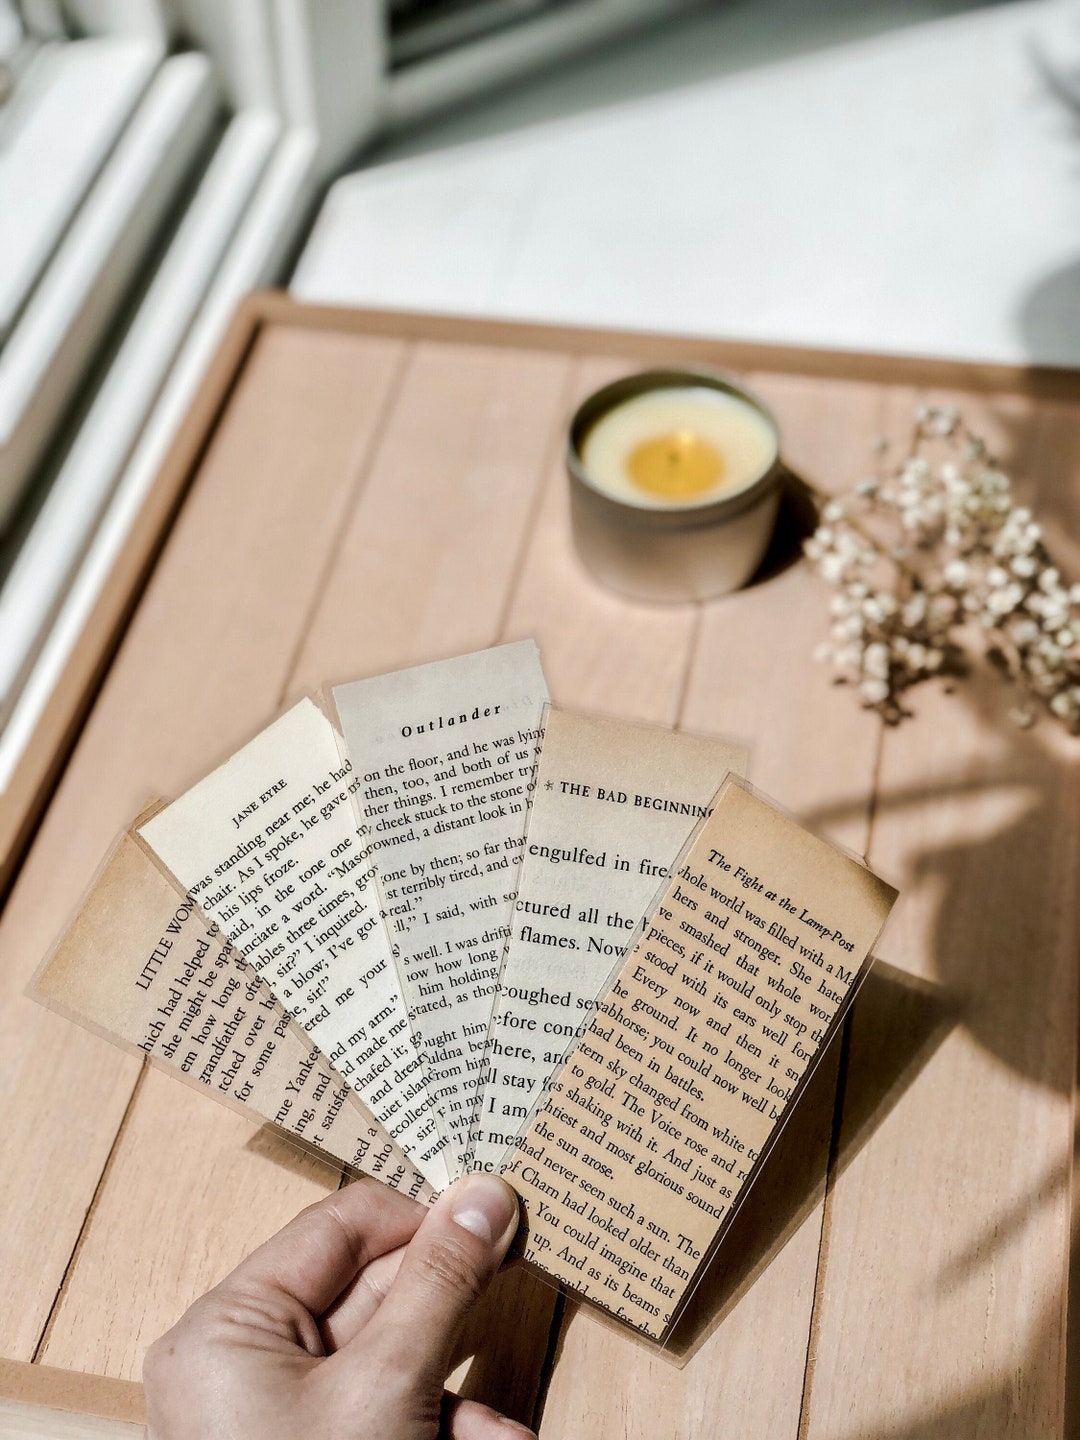 LITTLE WOM
hich had helped to
she might be spar
em how long th
grandfather ofte
tched over he
for some pa
rue Yankee
ing, and
et satisfac
JANE EYRE
was standing near me; he had
chair. As I spoke, he gave m
his lips froze.
aid, in the tone one m
nciate a word. "Maso
ables three times, gro
, sir?" I inquired.
a blow; I've got a
se, sir!"
ered me your s
nd my arm."
d made me
chafed it; g
and drear
uiet island
ecollecti
u, sir?
want
Outlander
on the floor, and he was lying
then, too, and both of us w
ther things. I remember try
cheek stuck to the stone o
owned, a distant look in h
one by then; so far that
st terribly tired, and ev
real."
ll," I said, with so
s well. I was drifti
ow how long
him holding
tated, as thou
ught him
uldna bea
rom him
rms rou
in my
what
* THE BAD BEGINNING
engulfed in fire.
ctured all the
flames. Now
coughed sev
efore conti
here, and
ll stay
I am
let me
The Fight at the Lamp-Post
whole world was filled with a Ma
hers and stronger. She hate
ve smashed that whole wor
pieces, if it would only stop th
stood with its ears well for
Every now and then it sn
he ground. It no longer look
abhorse; you could now well be
had been in battles.
tern sky changed from white to
to gold. The Voice rose and ro
s shaking with it. And just as
htiest and most glorious sound
the sun arose.
had never seen such a sun. The
of Charn had looked older than
r. You could imagine that
up. And as its beams s
could see for the